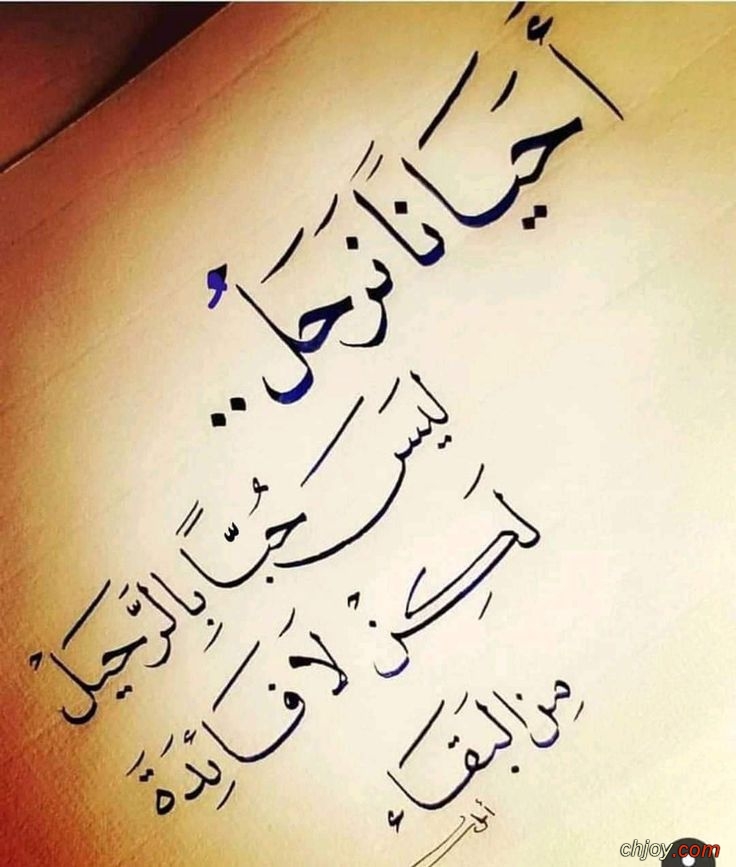 أَحيَاناً نَرحَلُ ..
ليسَ حُبّاً بِالرَّحيلْ
لَكِنْ لَا فَائِدَةَ
مِن البَقاءِ
chjoy.com